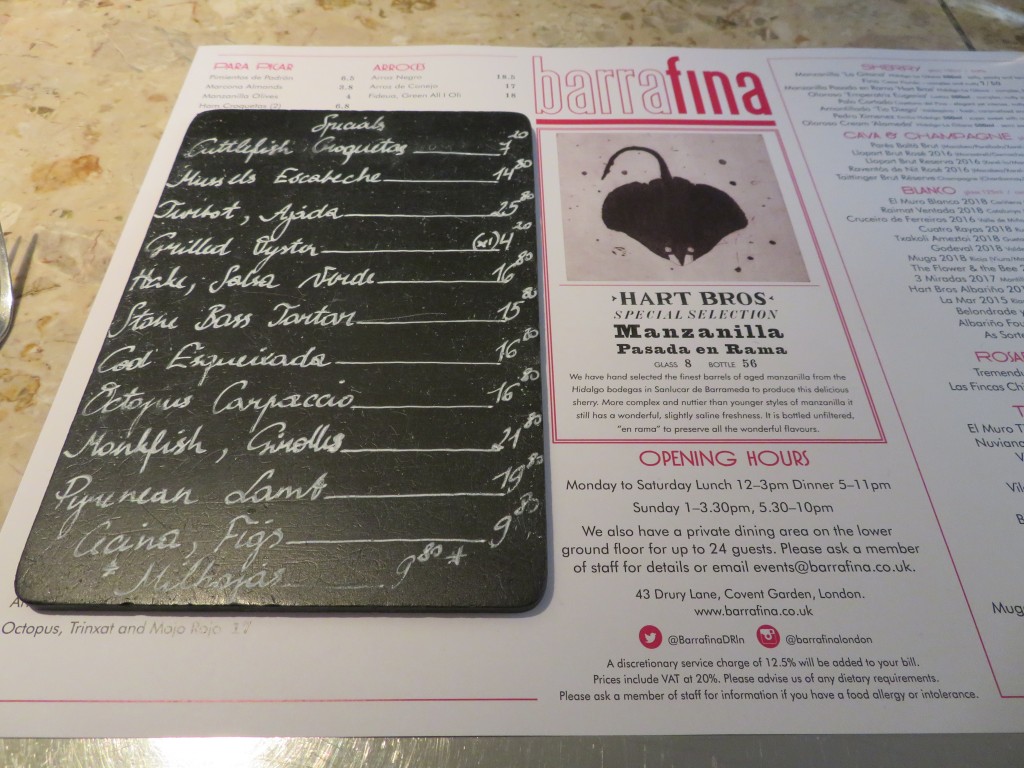 PARA PICAR
Pimientos de Padrón 6.5
Marcona Almonds 3.8
Manzanilla Olives 4
Ham Croquetas (2) 6.8
ARROCES
Arroz Negro 18.5
Arroz de Conejo 17
Fideua, Green All I Oli 18
Specials
Cuttlefish Croquetas 7 20
Mussels Escabeche 14 80
Turbot, Ajada 25 80
Grilled Oyster 4 20
Hake, Salsa Verde 16 80
Stone Bass Tartar 15 80
Cod Esqueixada 16 80
Octopus Carpaccio 16 80
Monkfish, Girolles 21 80
Pyrenean Lamb 19 80
Cecina, Figs 9 80
* Milhojas 9 80 *
Octopus, Trinxat and Mojo Rojo
barrafina
HART BROS
SPECIAL SELECTION
Manzanilla
Pasada en Rama
GLASS 8 BOTTLE 56
We have hand selected the finest barrels of aged manzanilla from the
Hidalgo bodegas in Sanlucar de Barrameda to produce this delicious
sherry. More complex and nuttier than younger styles of manzanilla it
still has a wonderful, slightly saline freshness. It is bottled unfiltered,
"en rama" to preserve all the wonderful flavours.
OPENING HOURS
Monday to Saturday Lunch 12–3pm Dinner 5–11pm
Sunday 1–3.30pm, 5.30–10pm
We also have a private dining area on the lower
ground floor for up to 24 guests. Please ask a member
of staff for details or email events@barrafina.co.uk.
43 Drury Lane, Covent Garden, London.
www.barrafina.co.uk
@BarrafinaDRln @barrafinalondon
A discretionary service charge of 12.5% will be added to your bill.
Prices include VAT at 20%. Please advise us of any dietary requirements.
Please ask a member of staff for information if you have a food allergy or intolerance.
SHERRY
CAVA & CHAMPAGNE
Parés Baltà Brut
Llopart Brut Rosé 2016
Llopart Brut Reserva 2016
Raventós de Nit Rosé 2016
Taittinger Brut Réserve Champagne
BLANCO
El Muro Blanco 2018
Raimat Ventada 2018
Cruceiro de Ferreiros 2018
Cuatro Rayas 2018
Txakoli Ameztoi 2018
Godeval 2018
Muga 2018
The Flower & the Bee
3 Miradas 2017
Hart Bros Albariño
La Mar 2015
Belondrade y
Albariño
As
ROSA
Las Fincas
El Muro